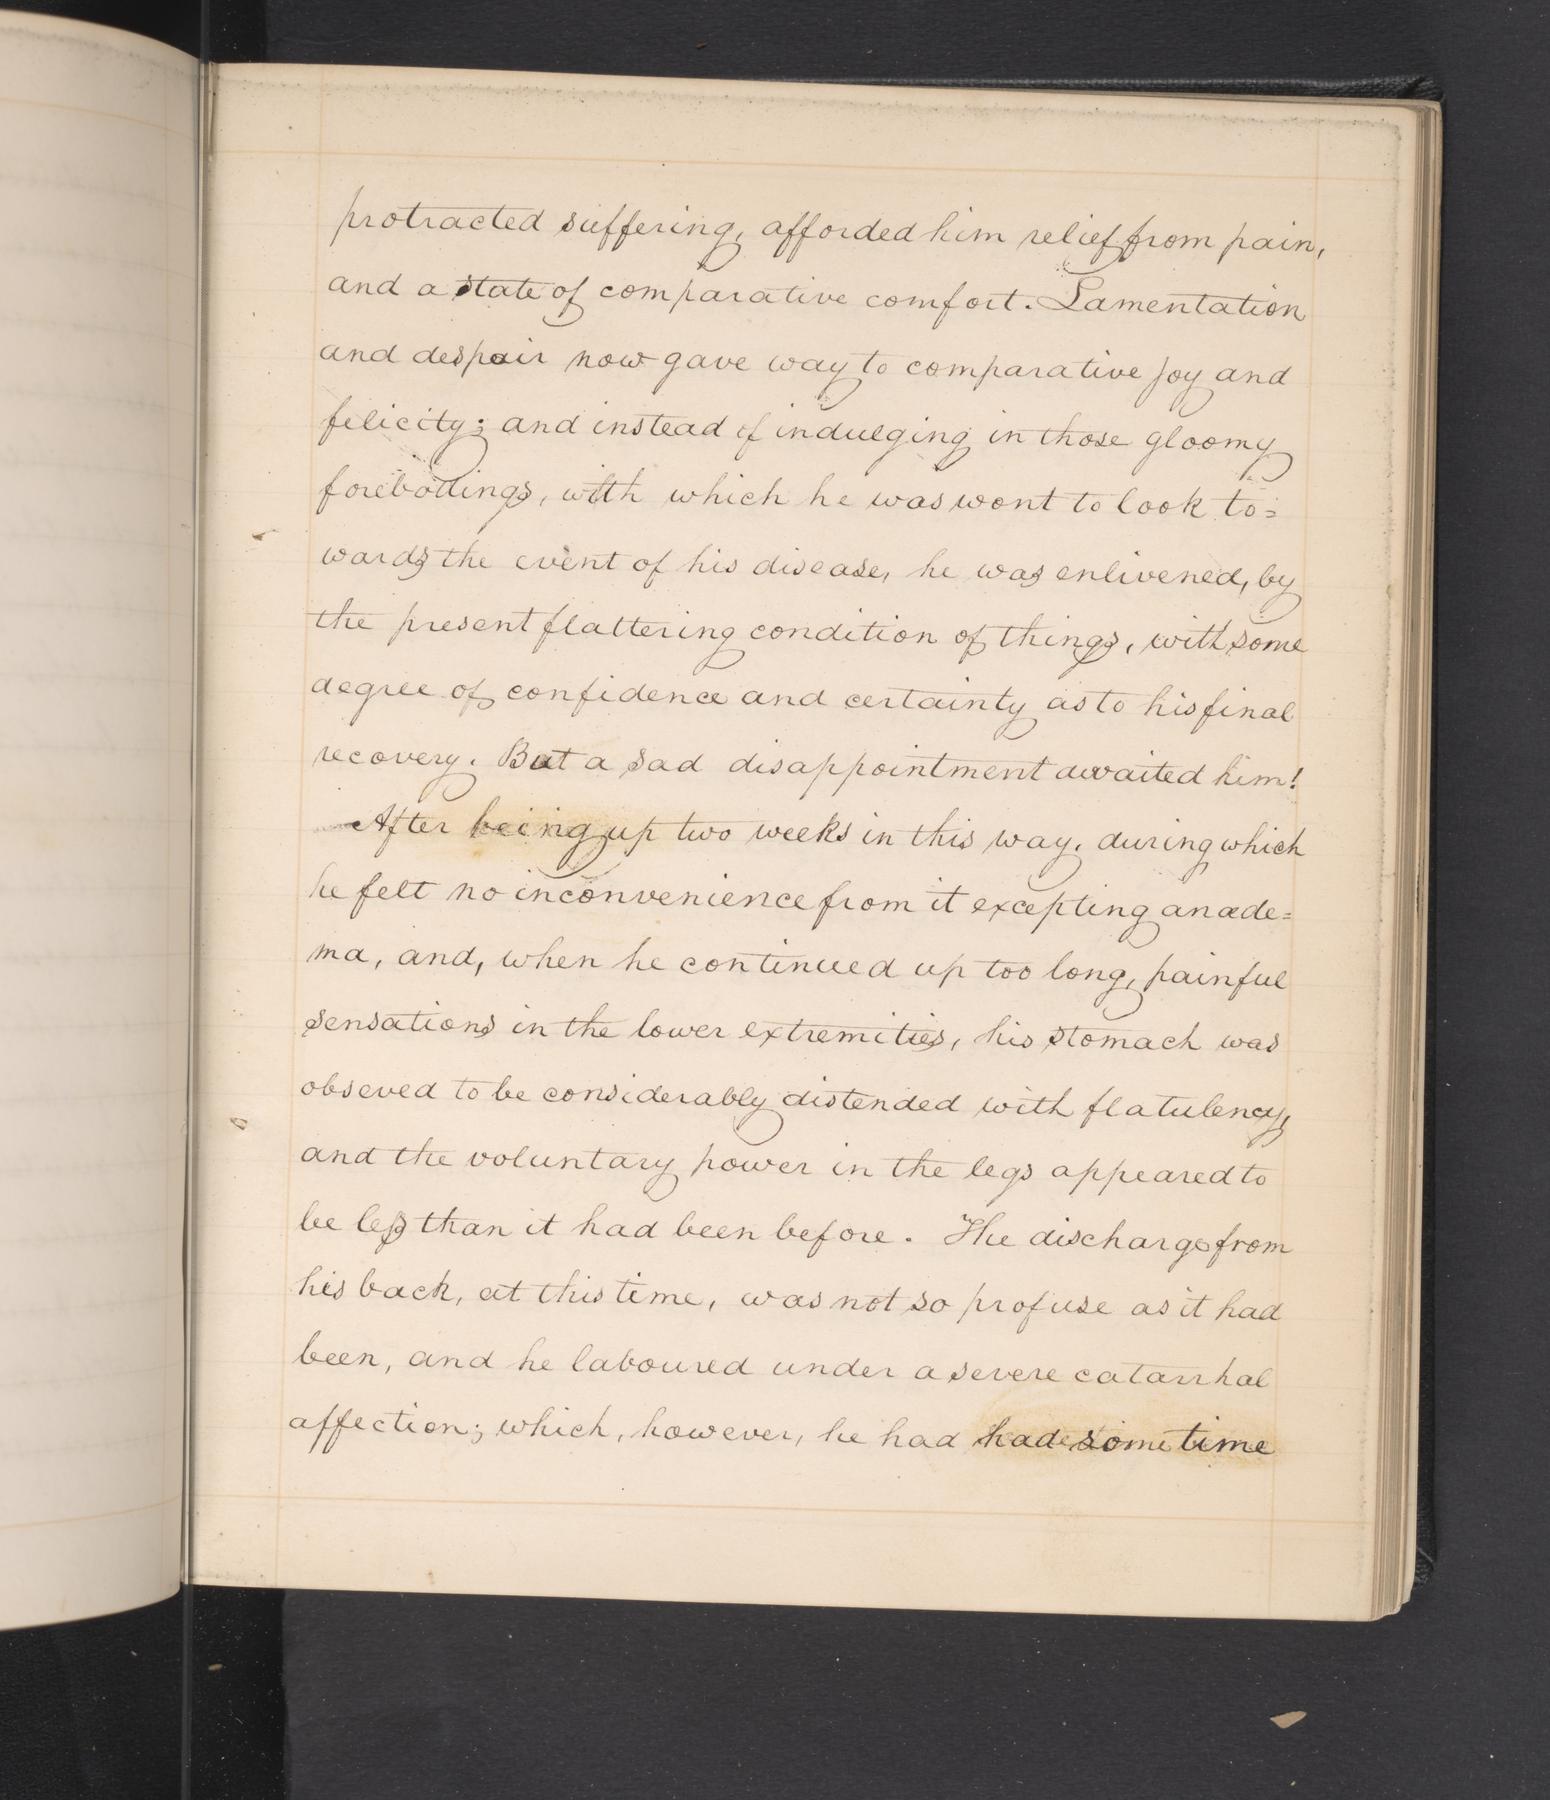 protracted suffering, afforded him relief from pain,
and a state of comparative comfort. Lamentation
and despair now gave way to comparative joy and
felicity; and instead of indulging in those gloomy
forebodings, with which he was wont to look to=
wards the event of his disease, he was enlivened, by
the present flattering condition of things, with some
degree of confidence and certainty as to his final
recovery. But a sad disappointment awaited him!
After being up two weeks in this way, during which
he felt no inconvenience from it excepting an œde=
ma, and, when he continued up too long, painful
sensations in the lower extremities, his stomach was
obseved to be considerably distended with flatulency,
and the voluntary power in the legs appeared to
be less than it had been before. The discharge from
his back, at this time, was not so profuse as it had
been, and he laboured under a severe catarrhal
affection; which, however, he had had some time